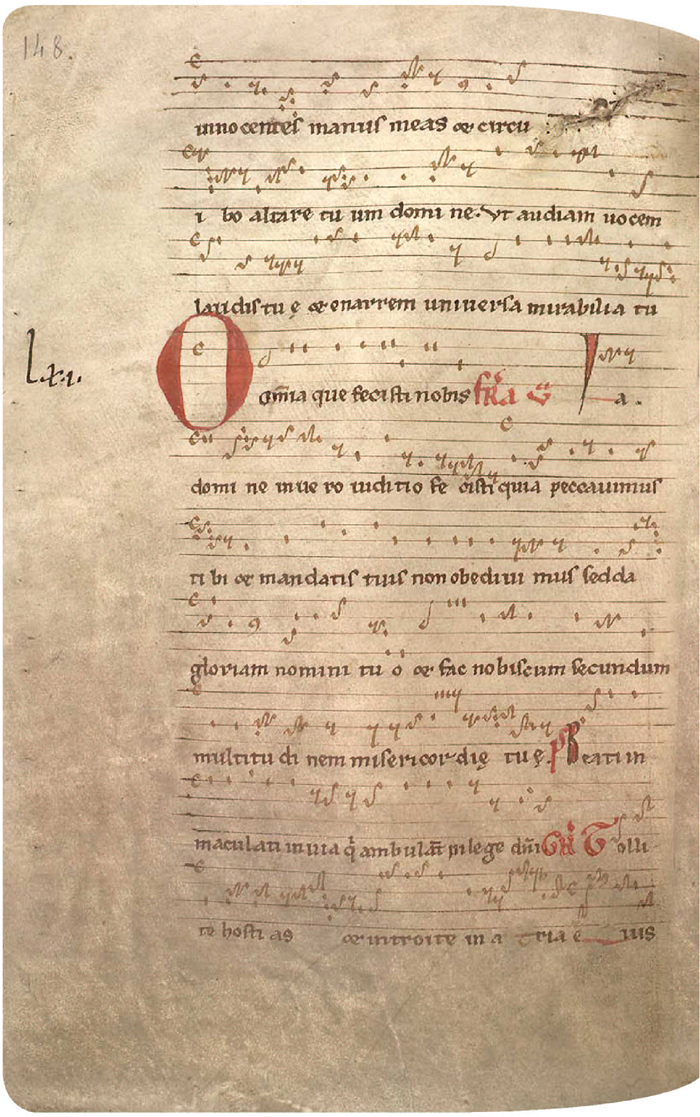 148.
innocentes manus meas & circu
i bo altare tu um domi ne. Vt audiam uocem
laudis tu ę & enarrem universa mirabilia tu
lxi.
Omnia que fecisti nobis a.
domi ne in ue ro iuditio fe cisti quia peccauimus
ti bi & mandatis tuis non obediui mus sed da
gloriam nomini tu o & fac nobiscum secundum
multitu di nem misericor dię tu ę. ps Beati in
maculati in uia q̇ ambulāt in lege dn̄i Tolli
te hosti as & introite in a tria e ius